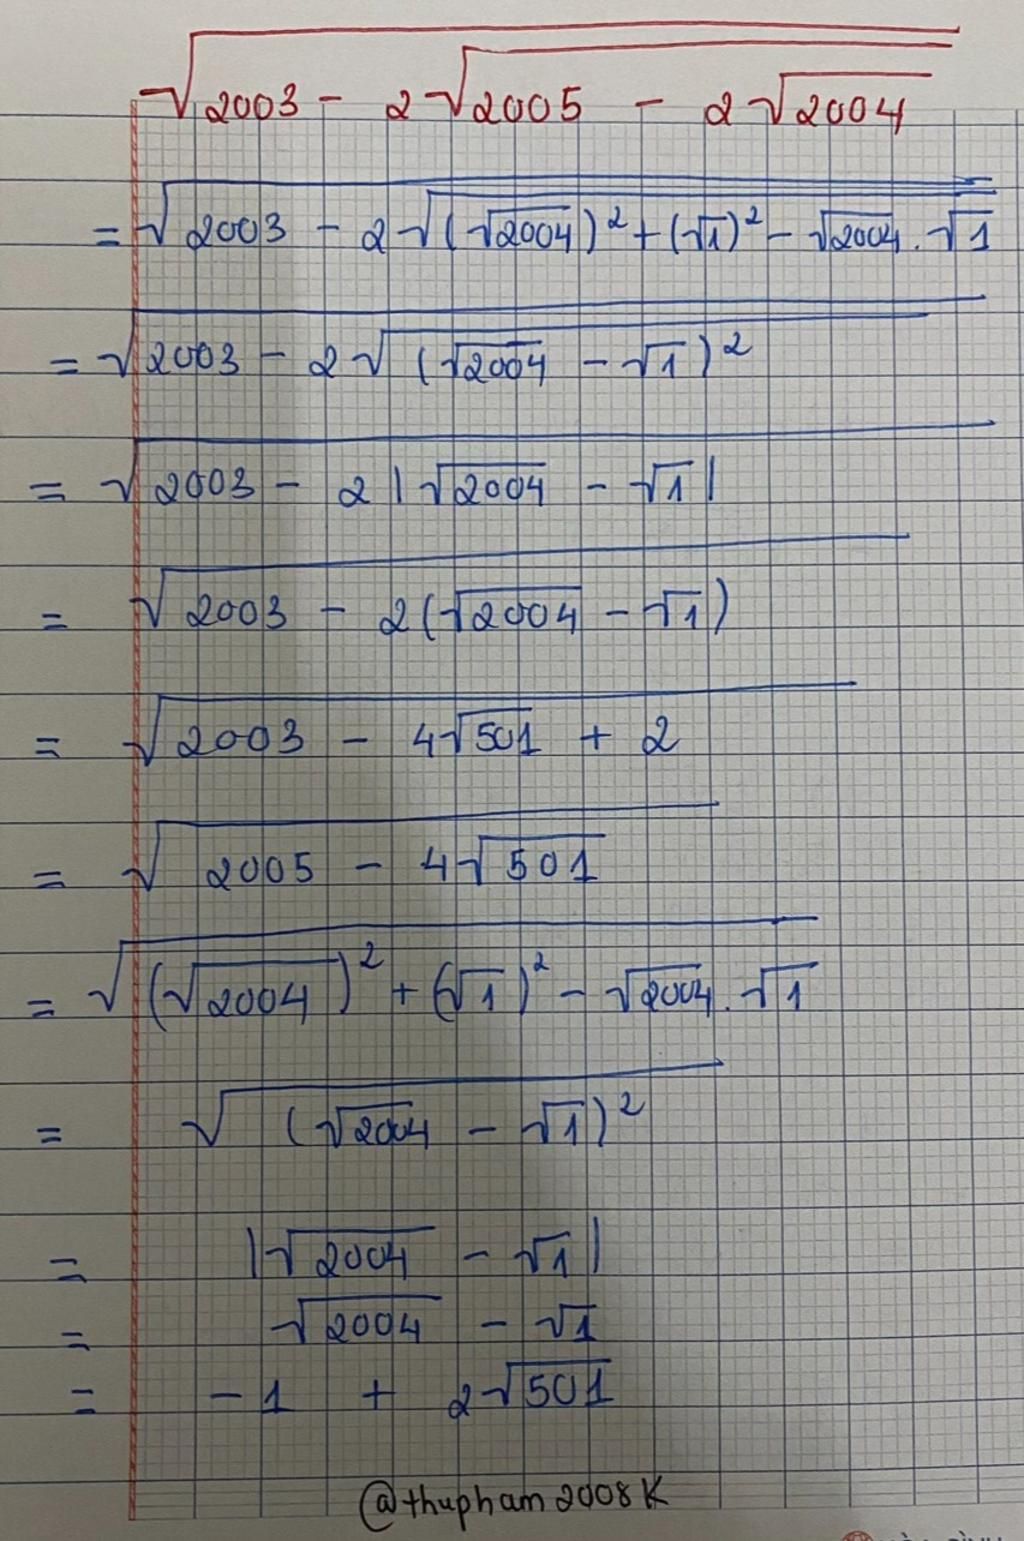 √(2003 - 2√(2005 - 2√2004))
= √(2003 - 2√((√2004)² + (√1)² - √2004 . √1))
= √(2003 - 2√((√2004 - √1)²))
= √(2003 - 2|√2004 - √1|)
= √(2003 - 2(√2004 - √1))
= √(2003 - 4√501 + 2)
= √(2005 - 4√501)
= √((√2004)² + (√1)² - √2004 . √1)
= √((√2004 - √1)²)
= |√2004 - √1|
= √2004 - √1
= -1 + 2√501
@thupham2008K